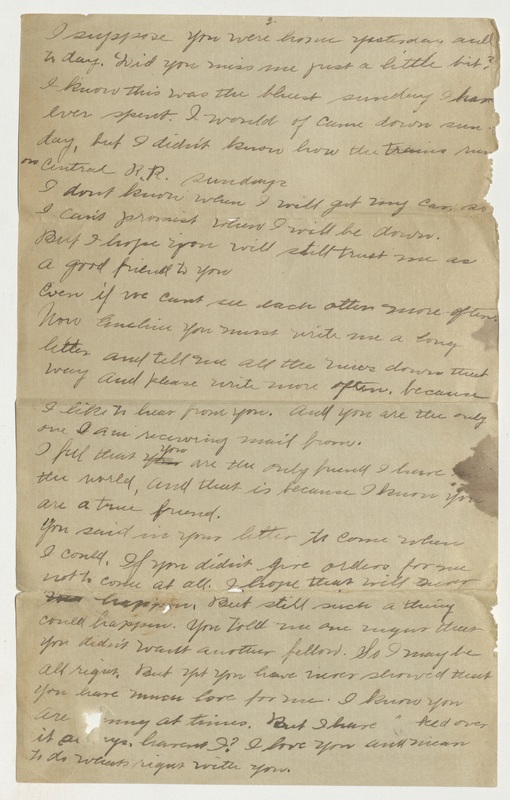 2
I suppose you were home yesterday and
to day. Did you miss me just a little bit?
I know this was the bluest sunday I have
ever spent. I would of came down sun-
day, but I didn't know how the trains run
on Central R.R. sundays
I dont know when I will get my car, so
I can't promist when I will be down.
But I hope you will still trust me as
a good friend to you
Even if we cant see each other more often.
Now you must write me a long
letter and tell me all the news down that
way and please write more often. because
I like to hear from you. And you are the only
one I am receiving mail from.
I feel that you are the only friend I have
the world, and that is because I know you
are a true friend.
You said in your letter to come when
I could. If you didn't give orders for me
not to come at all. I hope that will never
happen. But still such a thing
could happen. You told me one night that
you didn't want another fellow. So I may be
all right. But yet you have never showed that
you have much love for me. I know you
are at times. But I have ked over
it ys. havent I? I love you and mean
to do whats right with you.